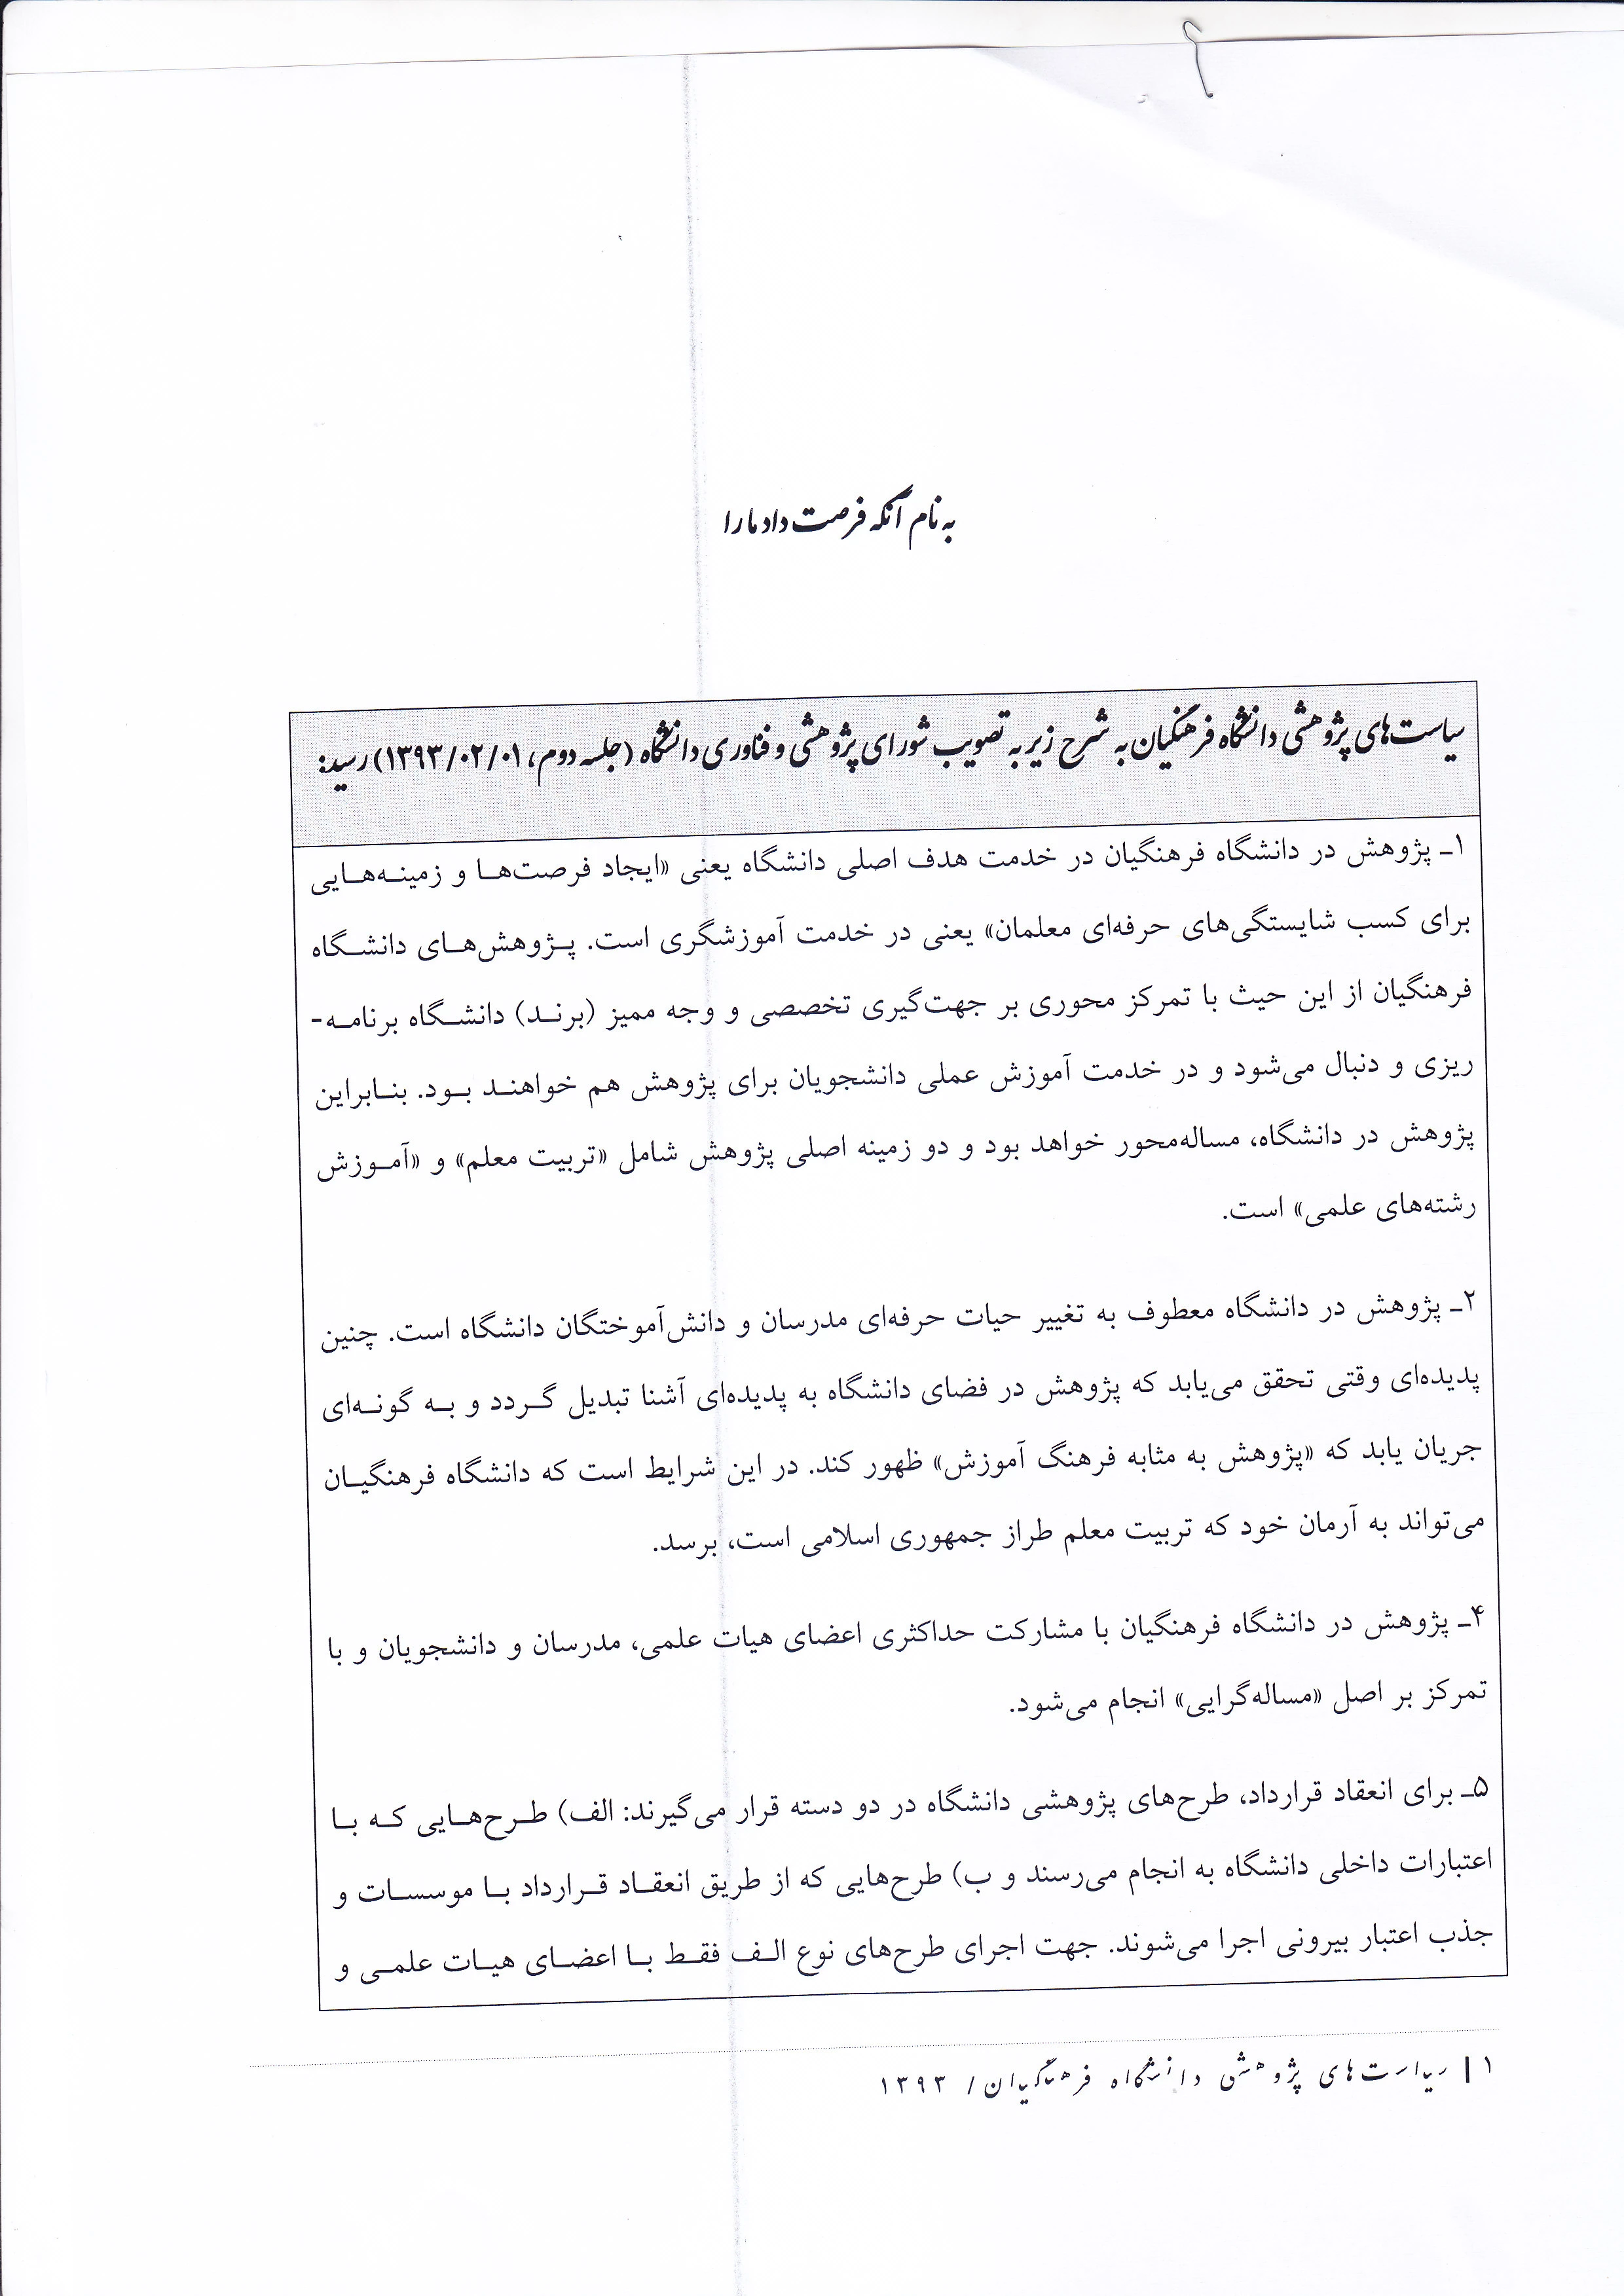 به نام آنکه فرصت داد ما را
سیاست‌های پژوهشی دانشگاه فرهنگیان به شرح زیر به تصویب شورای پژوهشی و فناوری دانشگاه (جلسه دوم، ۱۳۹۳/۰۲/۰۱) رسید:
۱ـ پژوهش در دانشگاه فرهنگیان در خدمت هدف اصلی دانشگاه یعنی «ایجاد فرصت‌هـا و زمینـه‌هـایی
برای کسب شایستگی‌های حرفه‌ای معلمان» یعنی در خدمت آموزشگری است. پـژوهش‌هـای دانشـگاه
فرهنگیان از این حیث با تمرکز محوری بر جهت‌گیری تخصصی و وجه ممیز (برنـد) دانشـگاه برنامـه-
ریزی و دنبال می‌شود و در خدمت آموزش عملی دانشجویان برای پژوهش هم خواهنـد بـود. بنـابراین
پژوهش در دانشگاه، مساله‌محور خواهد بود و دو زمینه اصلی پژوهش شامل «تربیت معلم» و «آمـوزش
رشته‌های علمی» است.
۲ـ پژوهش در دانشگاه معطوف به تغییر حیات حرفه‌ای مدرسان و دانش‌آموختگان دانشگاه است. چنین
پدیده‌ای وقتی تحقق می‌یابد که پژوهش در فضای دانشگاه به پدیده‌ای آشنا تبدیل گـردد و بـه گونـه‌ای
جریان یابد که «پژوهش به مثابه فرهنگ آموزش» ظهور کند. در این شرایط است که دانشگاه فرهنگیـان
می‌تواند به آرمان خود که تربیت معلم طراز جمهوری اسلامی است، برسد.
۴ـ پژوهش در دانشگاه فرهنگیان با مشارکت حداکثری اعضای هیات علمی، مدرسان و دانشجویان و با
تمرکز بر اصل «مساله‌گرایی» انجام می‌شود.
۵ـ برای انعقاد قرارداد، طرح‌های پژوهشی دانشگاه در دو دسته قرار می‌گیرند: الف) طـرح‌هـایی کـه بـا
اعتبارات داخلی دانشگاه به انجام می‌رسند و ب) طرح‌هایی که از طریق انعقـاد قـرارداد بـا موسسـات و
جذب اعتبار بیرونی اجرا می‌شوند. جهت اجرای طرح‌های نوع الـف فقـط بـا اعضـای هیـات علمـی و
۱ | سیاست‌های پژوهشی دانشگاه فرهنگیان/ ۱۳۹۳